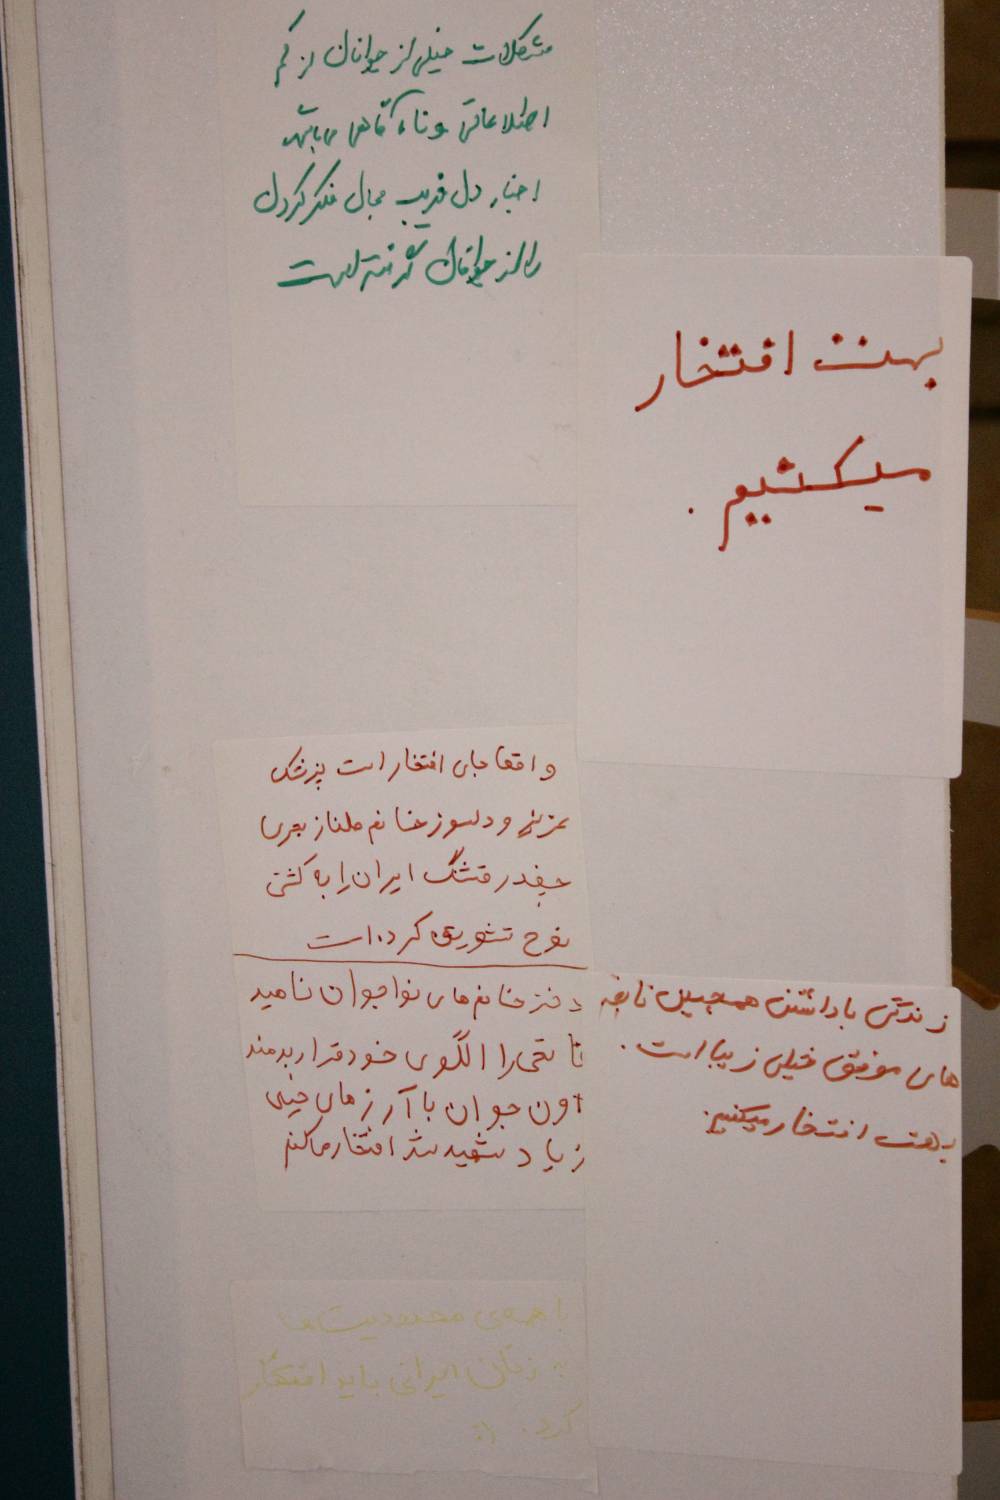 مشکلات خیلی از جوانان از کم
اطلاعاتی و ناآگاهی می‌باشد
اخبار دل فریب مجال فکر کردن
را از جوانان گرفته است
بهت افتخار
میکنیم.
واقعا جای افتخار است پزشک
عزیز و دلسوز خانم
چقدر قشنگ ایران را به کشتی
نوح تشویق کرده است
دختر خانم‌های نواجوان نا امید
را الگوی خود قرار بدهند
اون جوان با آرزهای خیلی
زیاد شهید شد افتخار ما کنم
زندگی با داشتن همچین نابغه
های موفق خیلی زیبا است.
بهت افتخار میکنیم
با همه‌ی محدودیت‌ها
به زنان ایرانی باید افتخار
کرد. :)